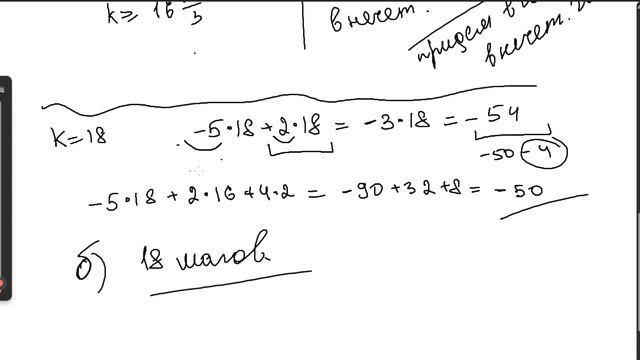 k ≥ 16 2/3
в нечет.
придем в
в нечет.
k=18
-5·18 + 2·18 = -3·18 = -54
-50 - 4
-5·18 + 2·16 + 4·2 = -90 + 32 + 8 = -50
б) 18 шагов